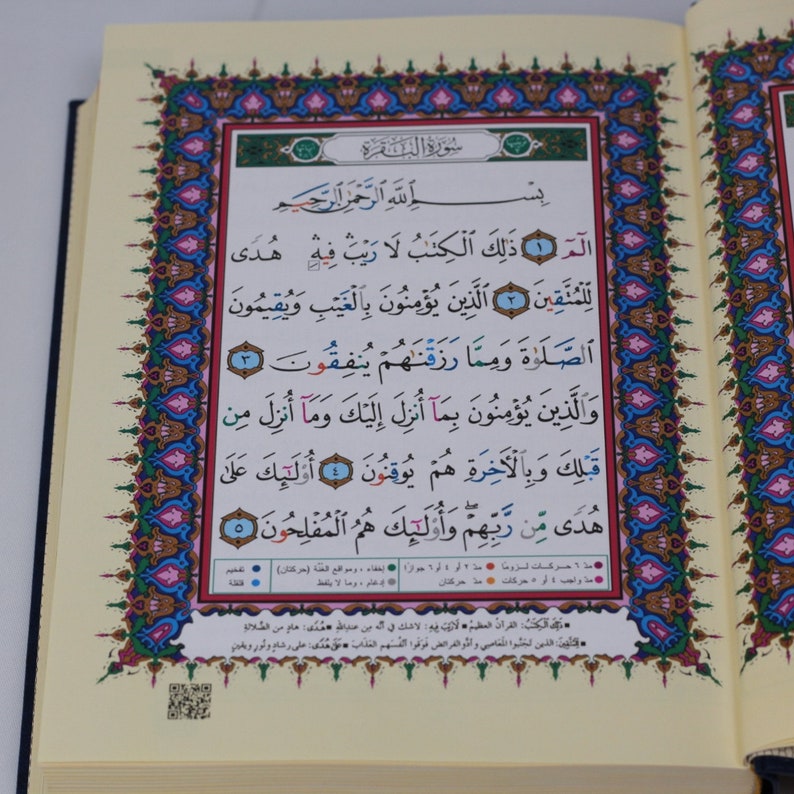 سُورَةُ البَقَرَةِ
بِسْمِ ٱللَّهِ ٱلرَّحْمَٰنِ ٱلرَّحِيمِ
الٓمٓ ١ ذَٰلِكَ ٱلْكِتَٰبُ لَا رَيْبَۛ فِيهِۛ هُدًى
لِّلْمُتَّقِينَ ٢ ٱلَّذِينَ يُؤْمِنُونَ بِٱلْغَيْبِ وَيُقِيمُونَ
ٱلصَّلَوٰةَ وَمِمَّا رَزَقْنَٰهُمْ يُنفِقُونَ ٣
وَٱلَّذِينَ يُؤْمِنُونَ بِمَآ أُنزِلَ إِلَيْكَ وَمَآ أُنزِلَ مِن
قَبْلِكَ وَبِٱلْأَخِرَةِ هُمْ يُوقِنُونَ ٤ أُو۟لَٰٓئِكَ عَلَىٰ
هُدًى مِّن رَّبِّهِمْۖ وَأُو۟لَٰٓئِكَ هُمُ ٱلْمُفْلِحُونَ ٥
مدّ ٦ حركات لزومًا مدّ ٢ أو ٤ أو ٦ جوازًا إخفاء، ومواقع الغُنَّة (حركتان) تفخيم
مدّ واجب ٤ أو ٥ حركات مدّ حركتان إدغام، وما لا يلفظ قلقلة
ذلك الكتابُ: القرآن العظيم لا ريب فيه: لاشك في أنه من عندالله هُدًى: هادٍ من الضلالة
للمتقين: الذين اجتنبوا المعاصي وأدّوا الفرائض فوقوا أنفسهم العذاب على هُدًى: على رشادٍ ونُورٍ ويقينٍ